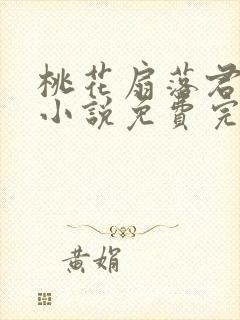 桃花扇落君
小說免費完
黄娟